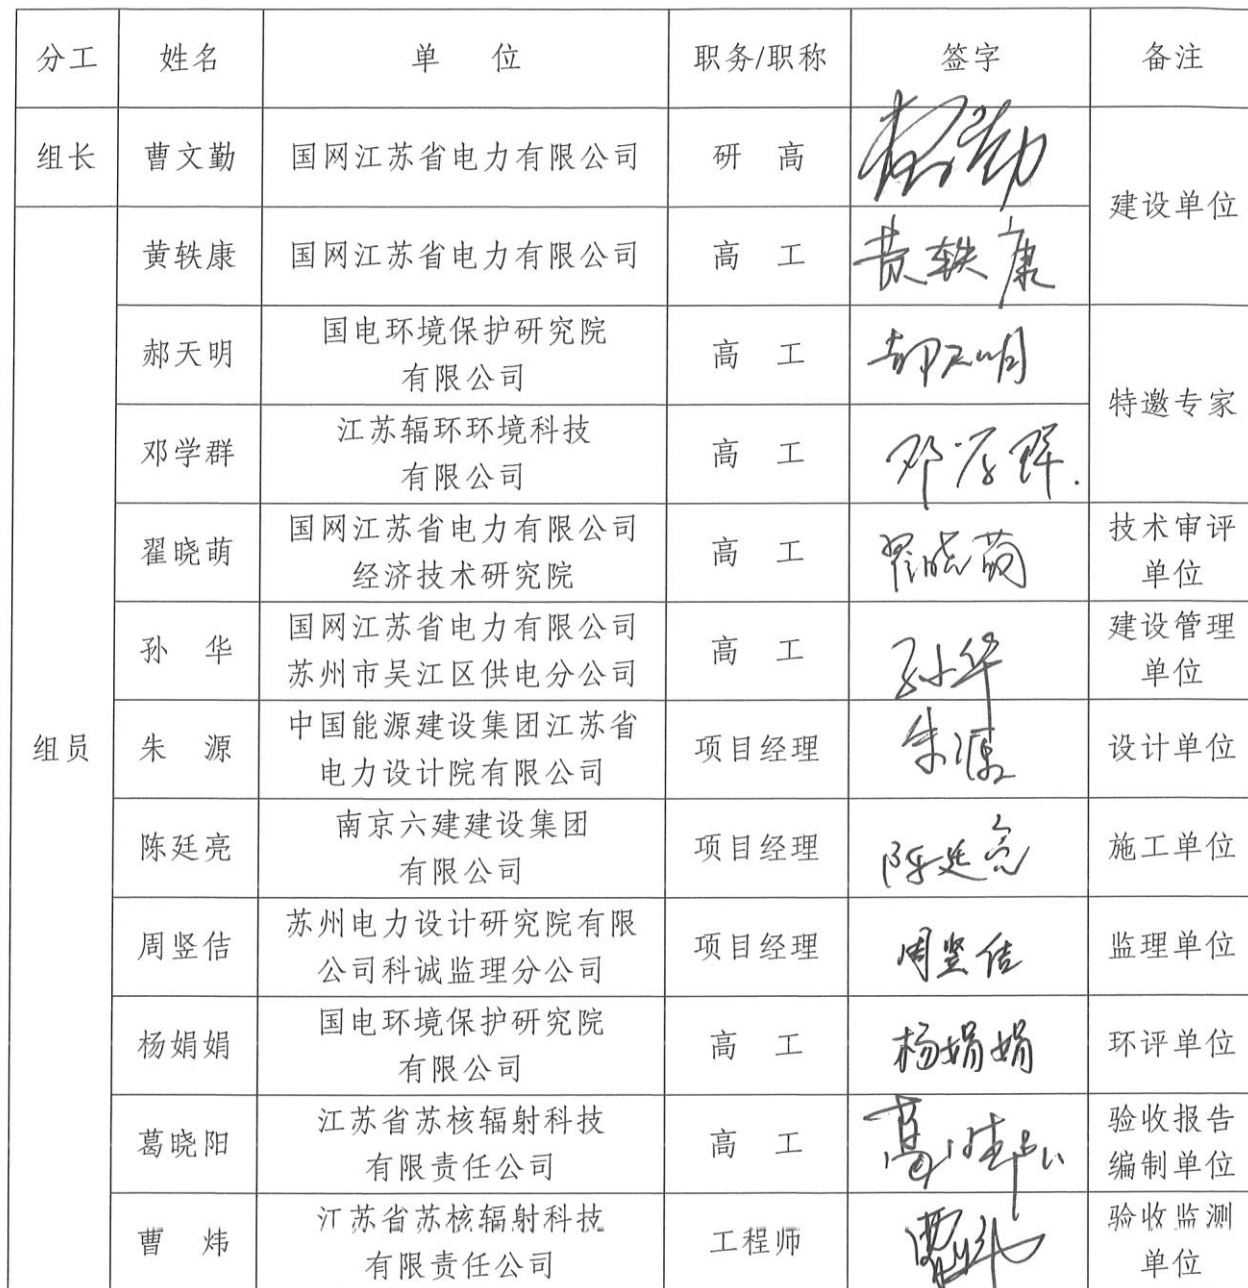 分工 姓名 单 位 职务/职称 签字 备注
组长 曹文勤 国网江苏省电力有限公司 研 高
建设单位
黄轶康 国网江苏省电力有限公司 高 工 黄轶康
郝天明 国电环境保护研究院
有限公司 高 工 郝天明
特邀专家
邓学群 江苏辐环环境科技
有限公司 高 工 邓学群
翟晓萌 国网江苏省电力有限公司
经济技术研究院 高 工 翟晓萌 技术审评
单位
孙 华 国网江苏省电力有限公司
苏州市吴江区供电分公司 高 工 孙华 建设管理
单位
组员 朱 源 中国能源建设集团江苏省
电力设计院有限公司 项目经理 朱源 设计单位
陈廷亮 南京六建建设集团
有限公司 项目经理 陈廷亮 施工单位
周竖佶 苏州电力设计研究院有限
公司科诚监理分公司 项目经理 周竖佶 监理单位
杨娟娟 国电环境保护研究院
有限公司 高 工 杨娟娟 环评单位
葛晓阳 江苏省苏核辐射科技
有限责任公司 高 工 验收报告
编制单位
曹 炜 江苏省苏核辐射科技
有限责任公司 工程师 验收监测
单位